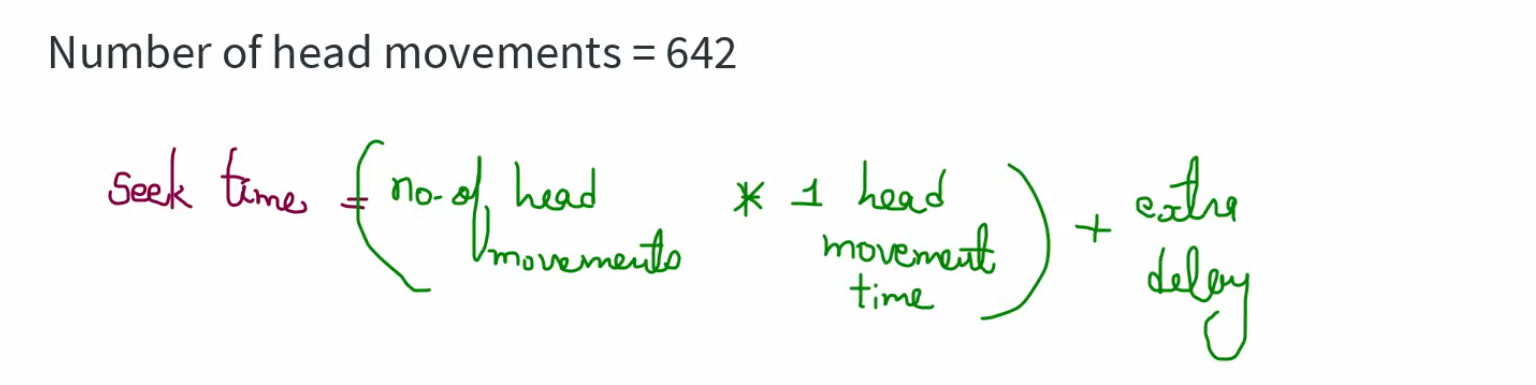 Number of head movements = 642
Seek time = (no. of head movements * 1 head movement time) + extra delay